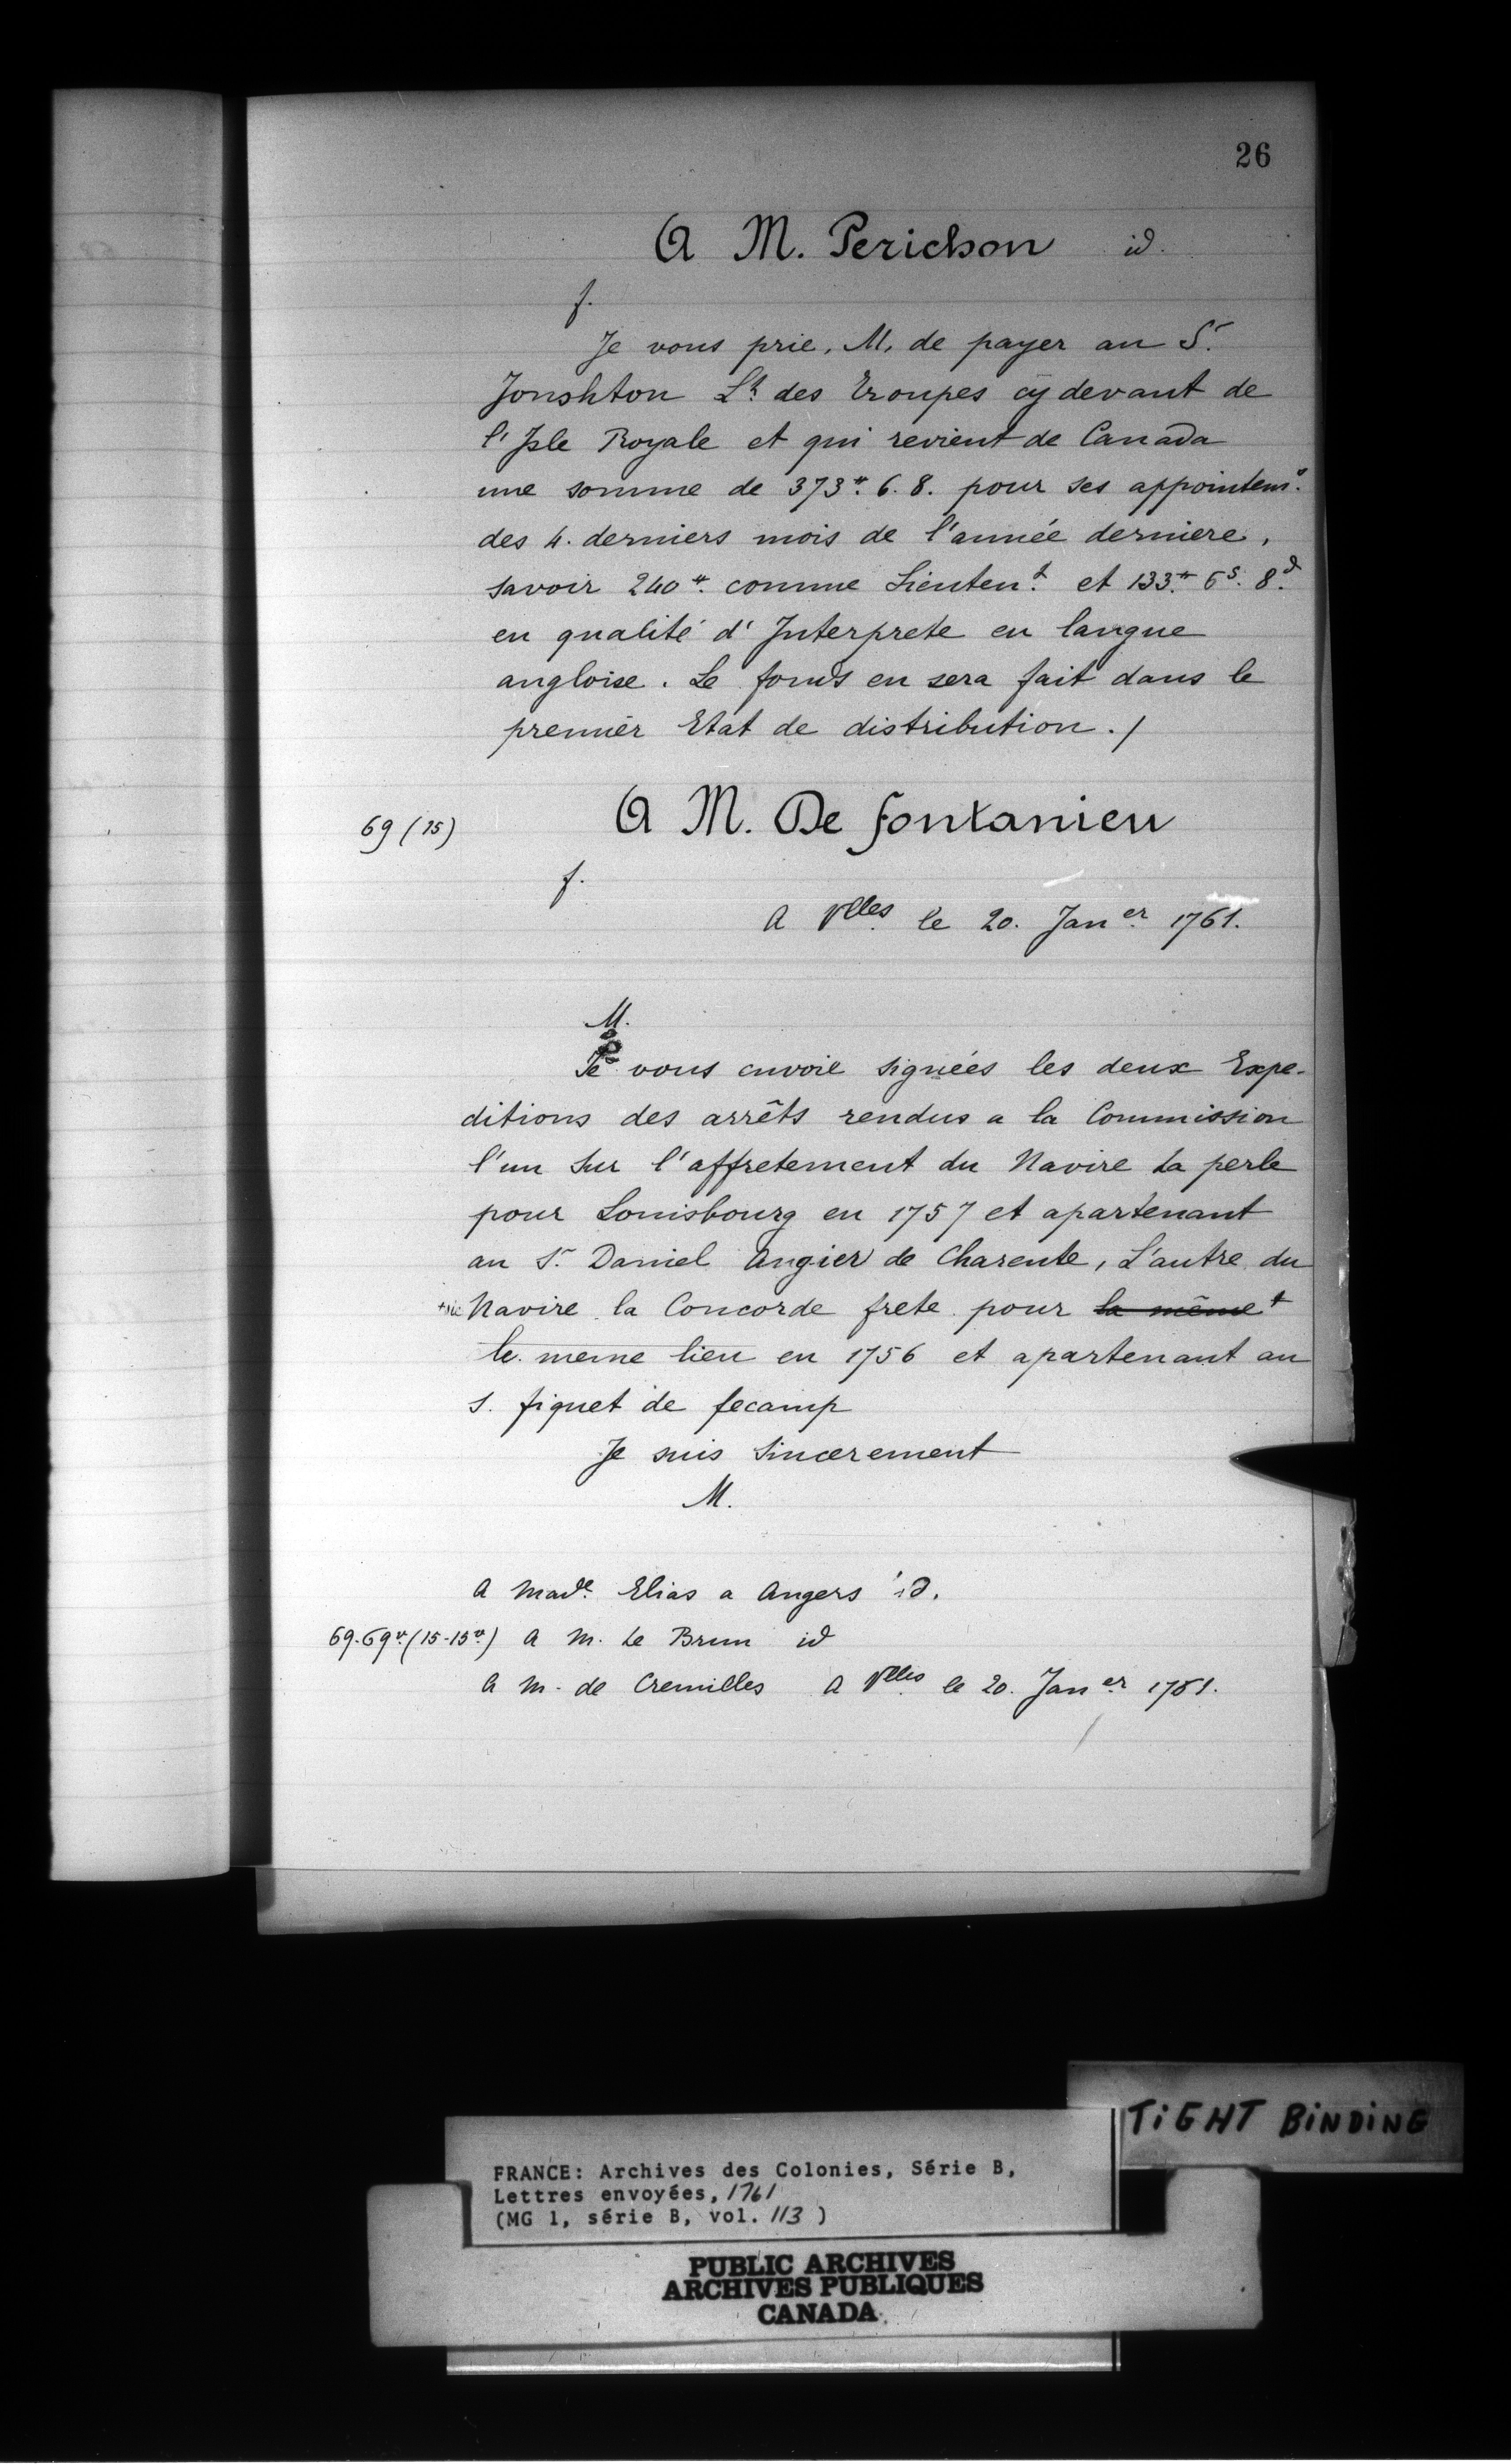 26
A M. Perichon id.
f.
Je vous prie, M, de payer au Sr.
Jonshton Lt. des troupes cy devant de
l'Isle Royale et qui revient de Canada
une somme de 373#. 6. 8. pour ses appointems.
des 4. derniers mois de l'année derniere,
savoir 240#. comme Lieutent. et 133#. 6s. 8d.
en qualité d'Interprete en langue
angloise. Le fonds en sera fait dans le
premier Etat de distribution. /
69 (15)
A M. De fontanieu
f.
A Vlles. le 20. Janer. 1761.
M.
Je vous envoie signées les deux Expe-
ditions des arrêts rendus a la Commission
l'un sur l'affretement du Navire la perle
pour Louisbourg en 1757 et apartenant
au Sr. Daniel Augier de Charente, L'autre du
+sic Navire la Concorde frete pour la même +
le meme lieu en 1756 et apartenant au
S. fiquet de fecamp
Je suis Sincerement
M.
A Made. Elias a Angers id.
69.69v. (15-15v.) A M. Le Brun id
A M. de Cremilles A Vlles. le 20. Janer. 1761.
TiGHT BiNDiNG
FRANCE: Archives des Colonies, Série B,
Lettres envoyées, 1761
(MG 1, série B, vol. 113 )
PUBLIC ARCHIVES
ARCHIVES PUBLIQUES
CANADA